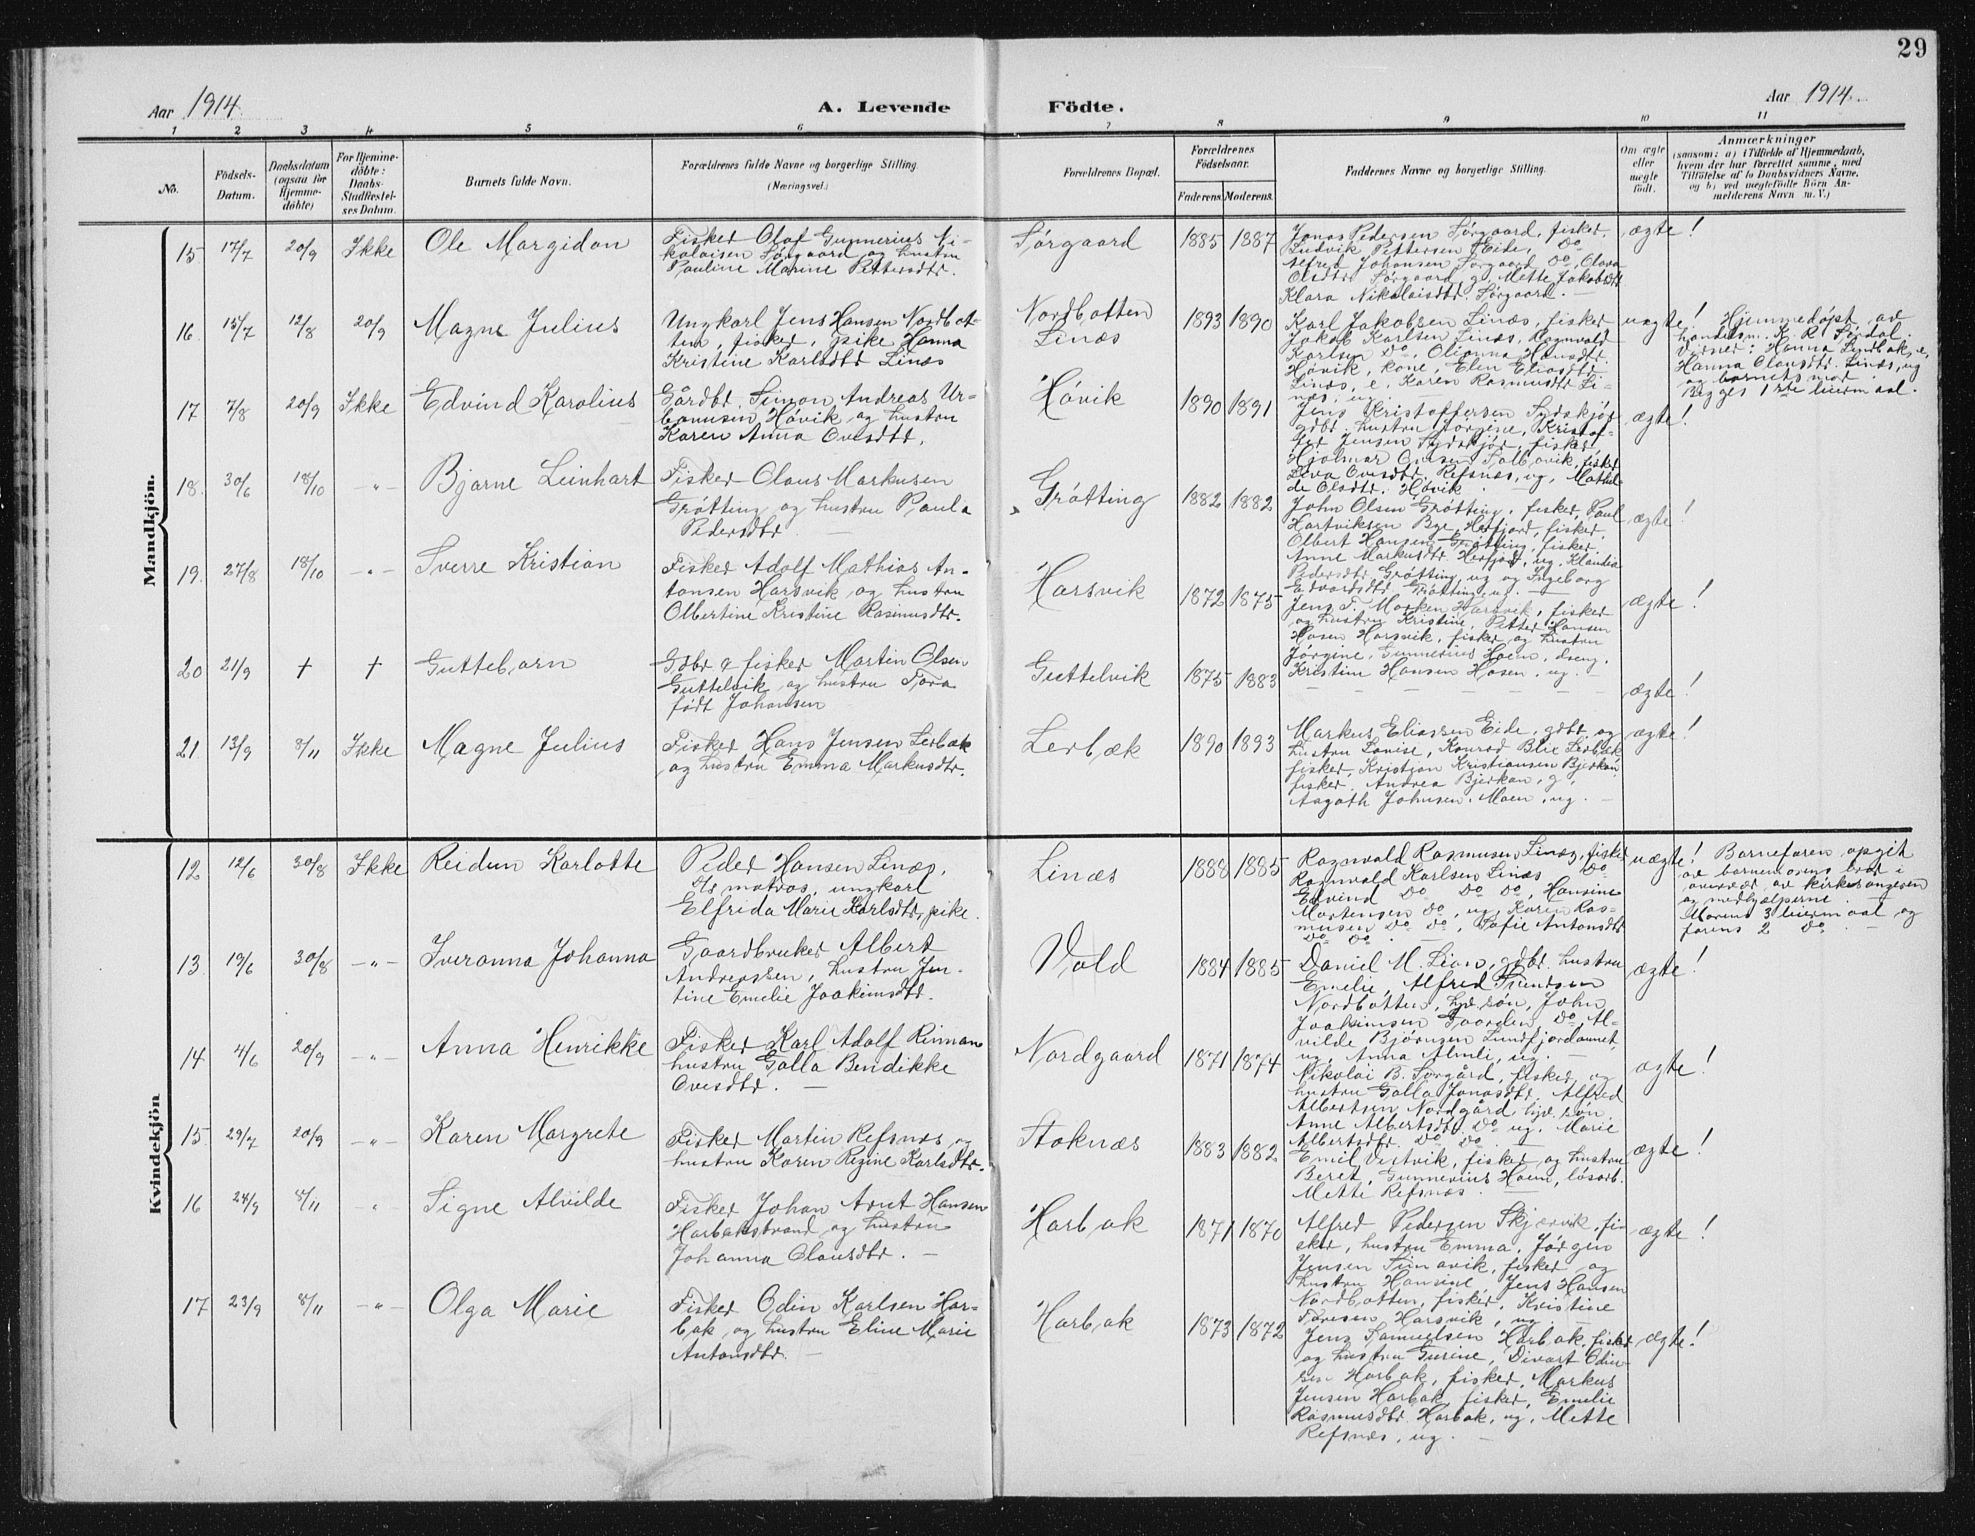 29
Aar 1914.
A. Levende Födte.
Aar 1914.
1 2 3 4 5 6 7 8 9 10 11
No.
Födsels-
Datum.
Daabsdatum
(ogsaa for
Hjemme-
döbte)
For Hjemme-
döbte:
Daabs-
Stadfæstel-
ses Datum.
Barnets fulde Navn.
Forældrenes fulde Navne og borgerlige Stilling.
(Næringsvei.)
Forældrenes Bopæl.
Forældrenes
Födselsaar.
Faderens. Moderens.
Faddernes Navne og borgerlige Stilling.
Om ægte
eller
uægte
födt.
Anmærkninger
(saasom: a) i Tilfælde af Hjemmedaab,
hvem der har forrettet samme, med
Tilföielse af to Daabsvidners Navne,
og b) ved uægtefödte Börn An-
melderens Navn m. V.)
Mandkjön.
15 17/7 20/9 Ikke Ole Margidon
Fisker Olaf Gunnerius Ni-
kolaisen Sørgaard og hustru
Pauline Marine Pettersdtr.
Sørgaard 1885 1887
Jonas Pedersen Sørgaard, fisker
Ludvik Pettersen Eide, Do
Alfred Johansen Sørgaard Do, Olava
Olsdtr Sørgaard g. Mette Jakobsdtr
Klara Nikolaisdtr. Sørgaard. —
ægte!
16 15/7 12/8 20/9 Magne Julius
Ungkarl Jens Hansen Nordbot-
ten, fisker, pike Hanna
Kristine Karlsdtr Linæs
Nordbotten
Linæs
1893 1890
Karl Jakobsen Linæs, fisker
Jakob Karlsen Linæs, Ragnvald
Karlsen Do, Olianna Hansdtr.
Høvik, kone, Elen Eliasdtr
Linæs, e. Karen Rasmusdtr Li-
næs, ug.
uægte!
Hjemmedøpt av
handelsm. K. R. Sørdal.
Vidner: Hanna Lindbak, e,
Hanna Olausdtr. Linæs, ug
og barnets mor.
Begges 1ste leiermaal.
17 7/8 20/9 Ikke Edvind Karolius
Gårdbr. Simon Andreas Ur-
banusen Høvik og hustru
Karen Anna Ovesdtr.
Høvik 1890 1891
Jens Kristoffersen Sydskjør
gdbr. hustru Jørgine, Kristof-
fer Jensen Sydskjør, fisker
Hjalmar Ovesen, fisker
Ovesdtr Refsnæs, ug, Mathil-
de Olsdtr. Høvik
ægte!
18. 30/6 18/10 — „ — Bjarne Leinhart
Fisker Olaus Markusen
Grøtting og hustru Paula
Pedersdtr —
Grøtting 1882 1882
John Olsen Grøtting, fisker, Paul
Hartviksen Bye, Herfjord, fisker,
Olbert Hansen Grøtting, fisker
Anne Markusdtr Herfjord, ug, Klaudia
Pedersdtr Grøtting, ug og Ingeborg
Edvardsdtr Grøtting, ug. —
ægte!
19. 27/8 18/10 — „ — Sverre Kristian
Fisker Adolf Mathias An-
tonsen Harsvik og hustru
Olbertine Kristine Rasmusdtr.
Harsvik 1872 1875
Jens F. Morken Harsvik, fisker
og hustru Kristine, Petter Hansen
Hosen Harsvik, fisker og hustru
Jørgine, Gunnerius Hoem, dreng,
Kristine Hansen Hosen, ug.
ægte!
20 21/9 † † Guttebarn
Gdbr & fisker Martin Olsen
Guttelvik og hustru Tora
født Johansen
Guttelvik 1875 1883
— — — — — —
ægte!
21. 13/9 8/11 Ikke Magne Julius
Fisker Hans Jensen Lerbæk
og hustru Emma Markusdtr.
Lerbæk 1890 1893
Markus Eliassen Eide, gdbr og
hustru Lovise, Konrad Blix Lerbæk
fisker, Kristian Kristiansen Bjerkan
fisker. Andrea Bjerkan, g,
Aagoth Johnsen. Moen, ug. —
ægte!
Kvindekjön
12 12/6 30/8 Ikke Reidun Karlotte
Peder Hansen Linæs,
matros, ungkarl
Elfrida Marie Karlsdtr, pike.
Linæs 1888 1885
Ragnvald Rasmusen Linæs, fisker
Ragnvald Karlsen Linæs Do
Edvind Do Do Do, Hansine
Mortensen Do, ug, Karen Ras-
musen Do Do, Sofie Antonsdtr
Do Do. —
uægte!
Barnefaren opgit
av barnemorens bror i
overvær av kirkesangeren
og medhjælperne.
Morens 3 leiermaal og
farens 2 Do. —
13 19/6 30/8 — „ — Iveranna Johanna
Gaardbruker Albert
Andreassen, hustru Jen-
tine Emelie Joakimsdtr.
Vold 1884 1885
Daniel M. Lian, gdbr. hustru
Emelie, Alfred
Nordbotten, hjv. søn, John
Joakimsen Gaarden Do, Al-
vilde Bjørnsen Lundfjordaunet,
ug, Anna Almli, ug. —
ægte!
14 4/6 20/9 — „ — Anna Henrikke
Fisker Karl Adolf
hustru Galla Bendikke
Ovesdtr. —
Nordgaard 1871 1874
Nikolai B. Sørgård, fisker og
hustru Galla Jonasdtr. Alfred
Albertsen Nordgård, hjv. søn,
Anne Albertsdtr Do ug. Marie
Albertsdtr Do Do.
ægte!
15 29/7 20/9 — „ — Karen Margrete
Fisker Martin Refsnæs og
hustru Karen Regine Karlsdtr.
Stoknæs 1883 1882
Emil Vestvik, fisker og hustru
Beret, Gunnerius Hoem, løsarb.
Mette Refsnæs. —
ægte!
16 24/9 8/11 „ Signe Alvilde
Fisker Johan Arnt Hansen
Harbakstrand og hustru
Johanna Olausdtr. —
Harbak 1871 1870
Alfred Pedersen Skjærvik, fi-
sker, hustru Emma, Jørgen
Jensen Sumavik, fisker og
hustru Hansine, Jens Hansen
Nordbotten, fisker, Kristine
Harsvik, ug —
ægte!
17 23/9 8/11 — „ — Olga Marie
Fisker Odin Karlsen Har-
bak og hustru Eline Marie
Antonsdtr. —
Harbak 1873 1872
Jens Samuelsen Harbak, fisker
og hustru Gurine, Divart Odin-
sen Harbak, fisker, Markus
Jensen Harbak fisker, Emelie
Rasmusdtr. Harbak, ug, Mette
Refsnæs, ug. —
ægte!